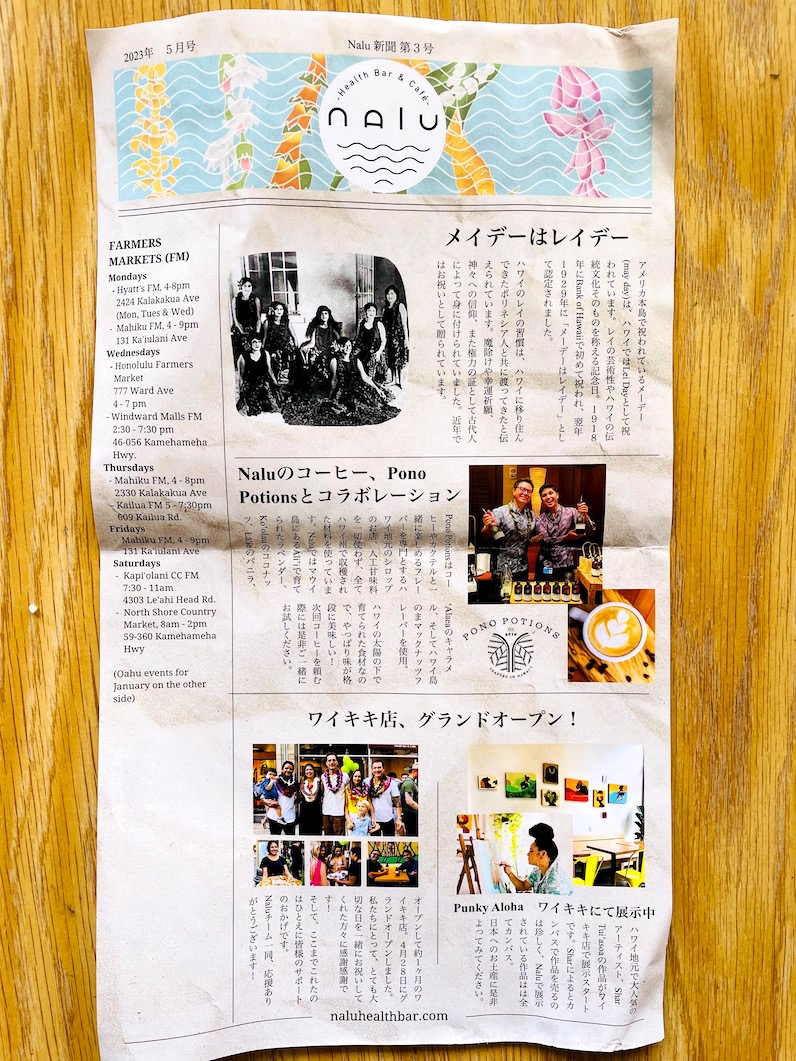 2023年　5月号
Nalu 新聞 第３号
-Health Bar & Café-
nalu
FARMERS
MARKETS (FM)
Mondays
- Hyatt's FM, 4-8pm
2424 Kalakakua Ave
(Mon, Tues & Wed)
- Mahiku FM, 4 - 9pm
131 Ka'iulani Ave
Wednesdays
- Honolulu Farmers
Market
777 Ward Ave
4 - 7 pm
- Windward Malls FM
2:30 - 7:30 pm
46-056 Kamehameha
Hwy.
Thursdays
- Mahiku FM, 4 - 8pm
2330 Kalakaua Ave
- Kailua FM 5 - 7;30pm
609 Kailua Rd.
Fridays
- Mahiku FM, 4 - 9pm
131 Ka'iulani Ave
Saturdays
- Kapi'olani CC FM
7:30 - 11am
4303 Le'ahi Head Rd.
- North Shore Country
Market, 8am - 2pm
59-360 Kamehameha
Hwy
(Oahu events for
January on the other
side)
メイデーはレイデー
アメリカ本島で祝われているメーデー
(may day)は、ハワイではLei Dayとして祝
われています。レイの芸術性やハワイの伝
統文化そのものを称える記念日。１９１８
年にBank of Hawaiiで初めて祝われ、翌年
１９２９年に「メーデーはレイデー」とし
て認定されました。
ハワイのレイの習慣は、ハワイに移り住ん
できたポリネシア人と共に渡ってきたと伝
えられています。魔除けや幸運祈願、
神々への信仰、また権力の証として古代人
によって身に付けられていました。近年で
はお祝いとして贈られています。
Naluのコーヒー、Pono
Potionsとコラボレーション
Pono Potionsはコー
ヒーやカクテルと
一緒に楽しめるフレー
バーを専門とするハ
ワイ地元のシロップ
のお店。人工甘味料
を一切使わず、全て
ハワイ州で収穫され
た材料を使っていま
す。Naluではマウイ
島にあるAli'iで育て
られたラベンダー、
Ko'olauのココナッ
ツ、LAEのバニラ、
'Alaeaのキャラメ
ル、そしてハワイ島
のまマックナッツフ
レーバーを使用。
ハワイの太陽の下で
育てられた食材なの
で、やっぱり味が格
段に美味しい！
次回コーヒーを頼む
際には是非ご一緒に
お試しください。
PONO POTIONS
EST
2019
CRAFTED IN HAWAII
ワイキキ店、グランドオープン！
オープンして約1ヶ月のワ
イキキ店。４月２８日にグ
ランドオープンしました。
私たちにとって、とても大
切な日を一緒にお祝いして
くれた方々に感謝感謝で
す！
そして、ここまでこれたの
はひとえに皆様のサポート
のおかげです。
Naluチーム一同、応援あり
がとうございます！
Punky Aloha　ワイキキにて展示中
ハワイ地元で大人気の
アーティスト、Shar
Tui'asoaの作品がワイ
キキ店で展示スタート
です。Sharによるとカ
ンバスで作品を売るの
は珍しく、Naluで展示
されている作品はは全
てカンバス。
日本へのお土産に是非
よってみてください。
naluhealthbar.com